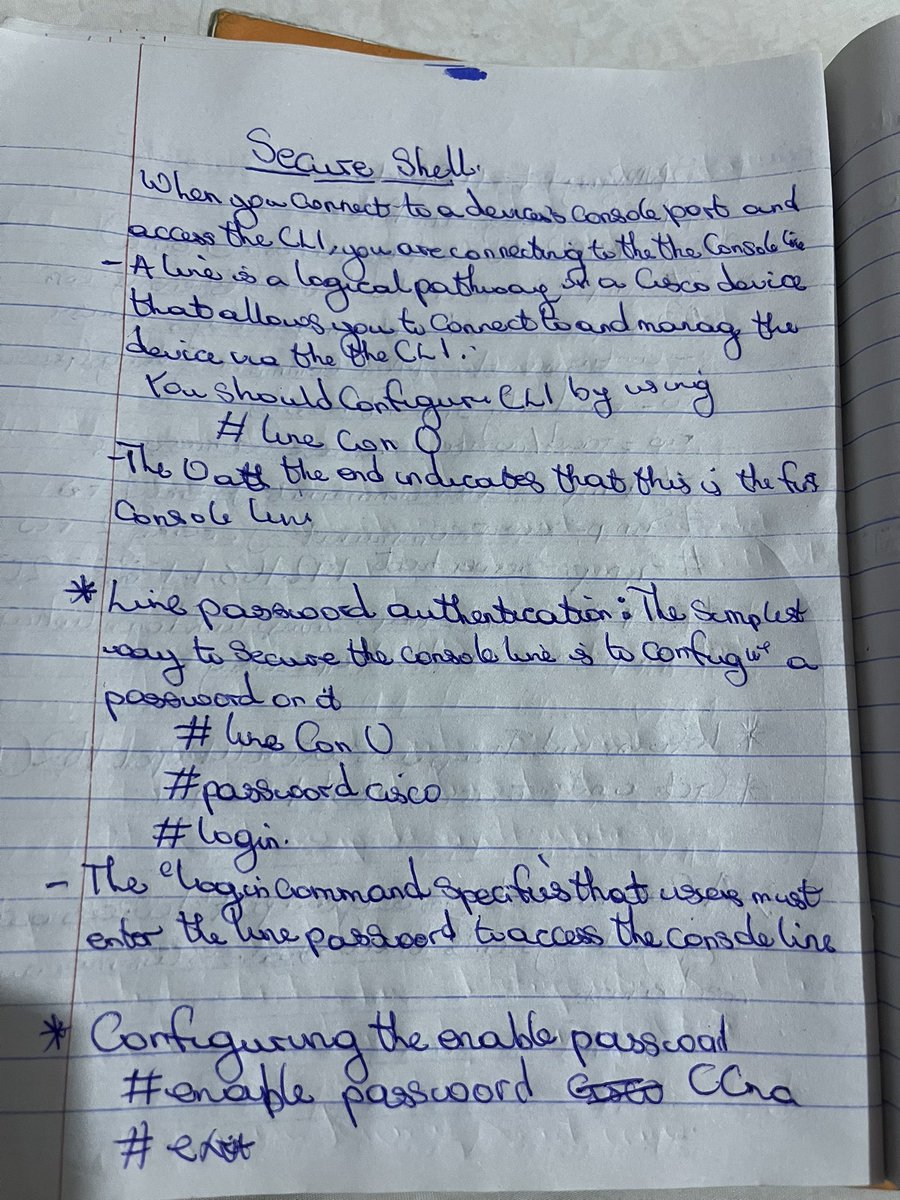 Secure Shell.
When you connect to a device's Console port and
access the CLI, you are connecting to the the Console line
- A line is a logical pathway in a Cisco device
that allows you to Connect to and manag the
device via the the CLI.
You should Configure CLI by using
# line Con 0
- The 0 at the end indicates that this is the firs
Console line
* Line password authentication: The Simplest
way to Secure the console line is to configure a
password on it
# line Con 0
#password cisco
#login.
- The "login command specifies that users must
enter the line password to access the console line
* Configuring the enable password
#enable password CCna
# exit